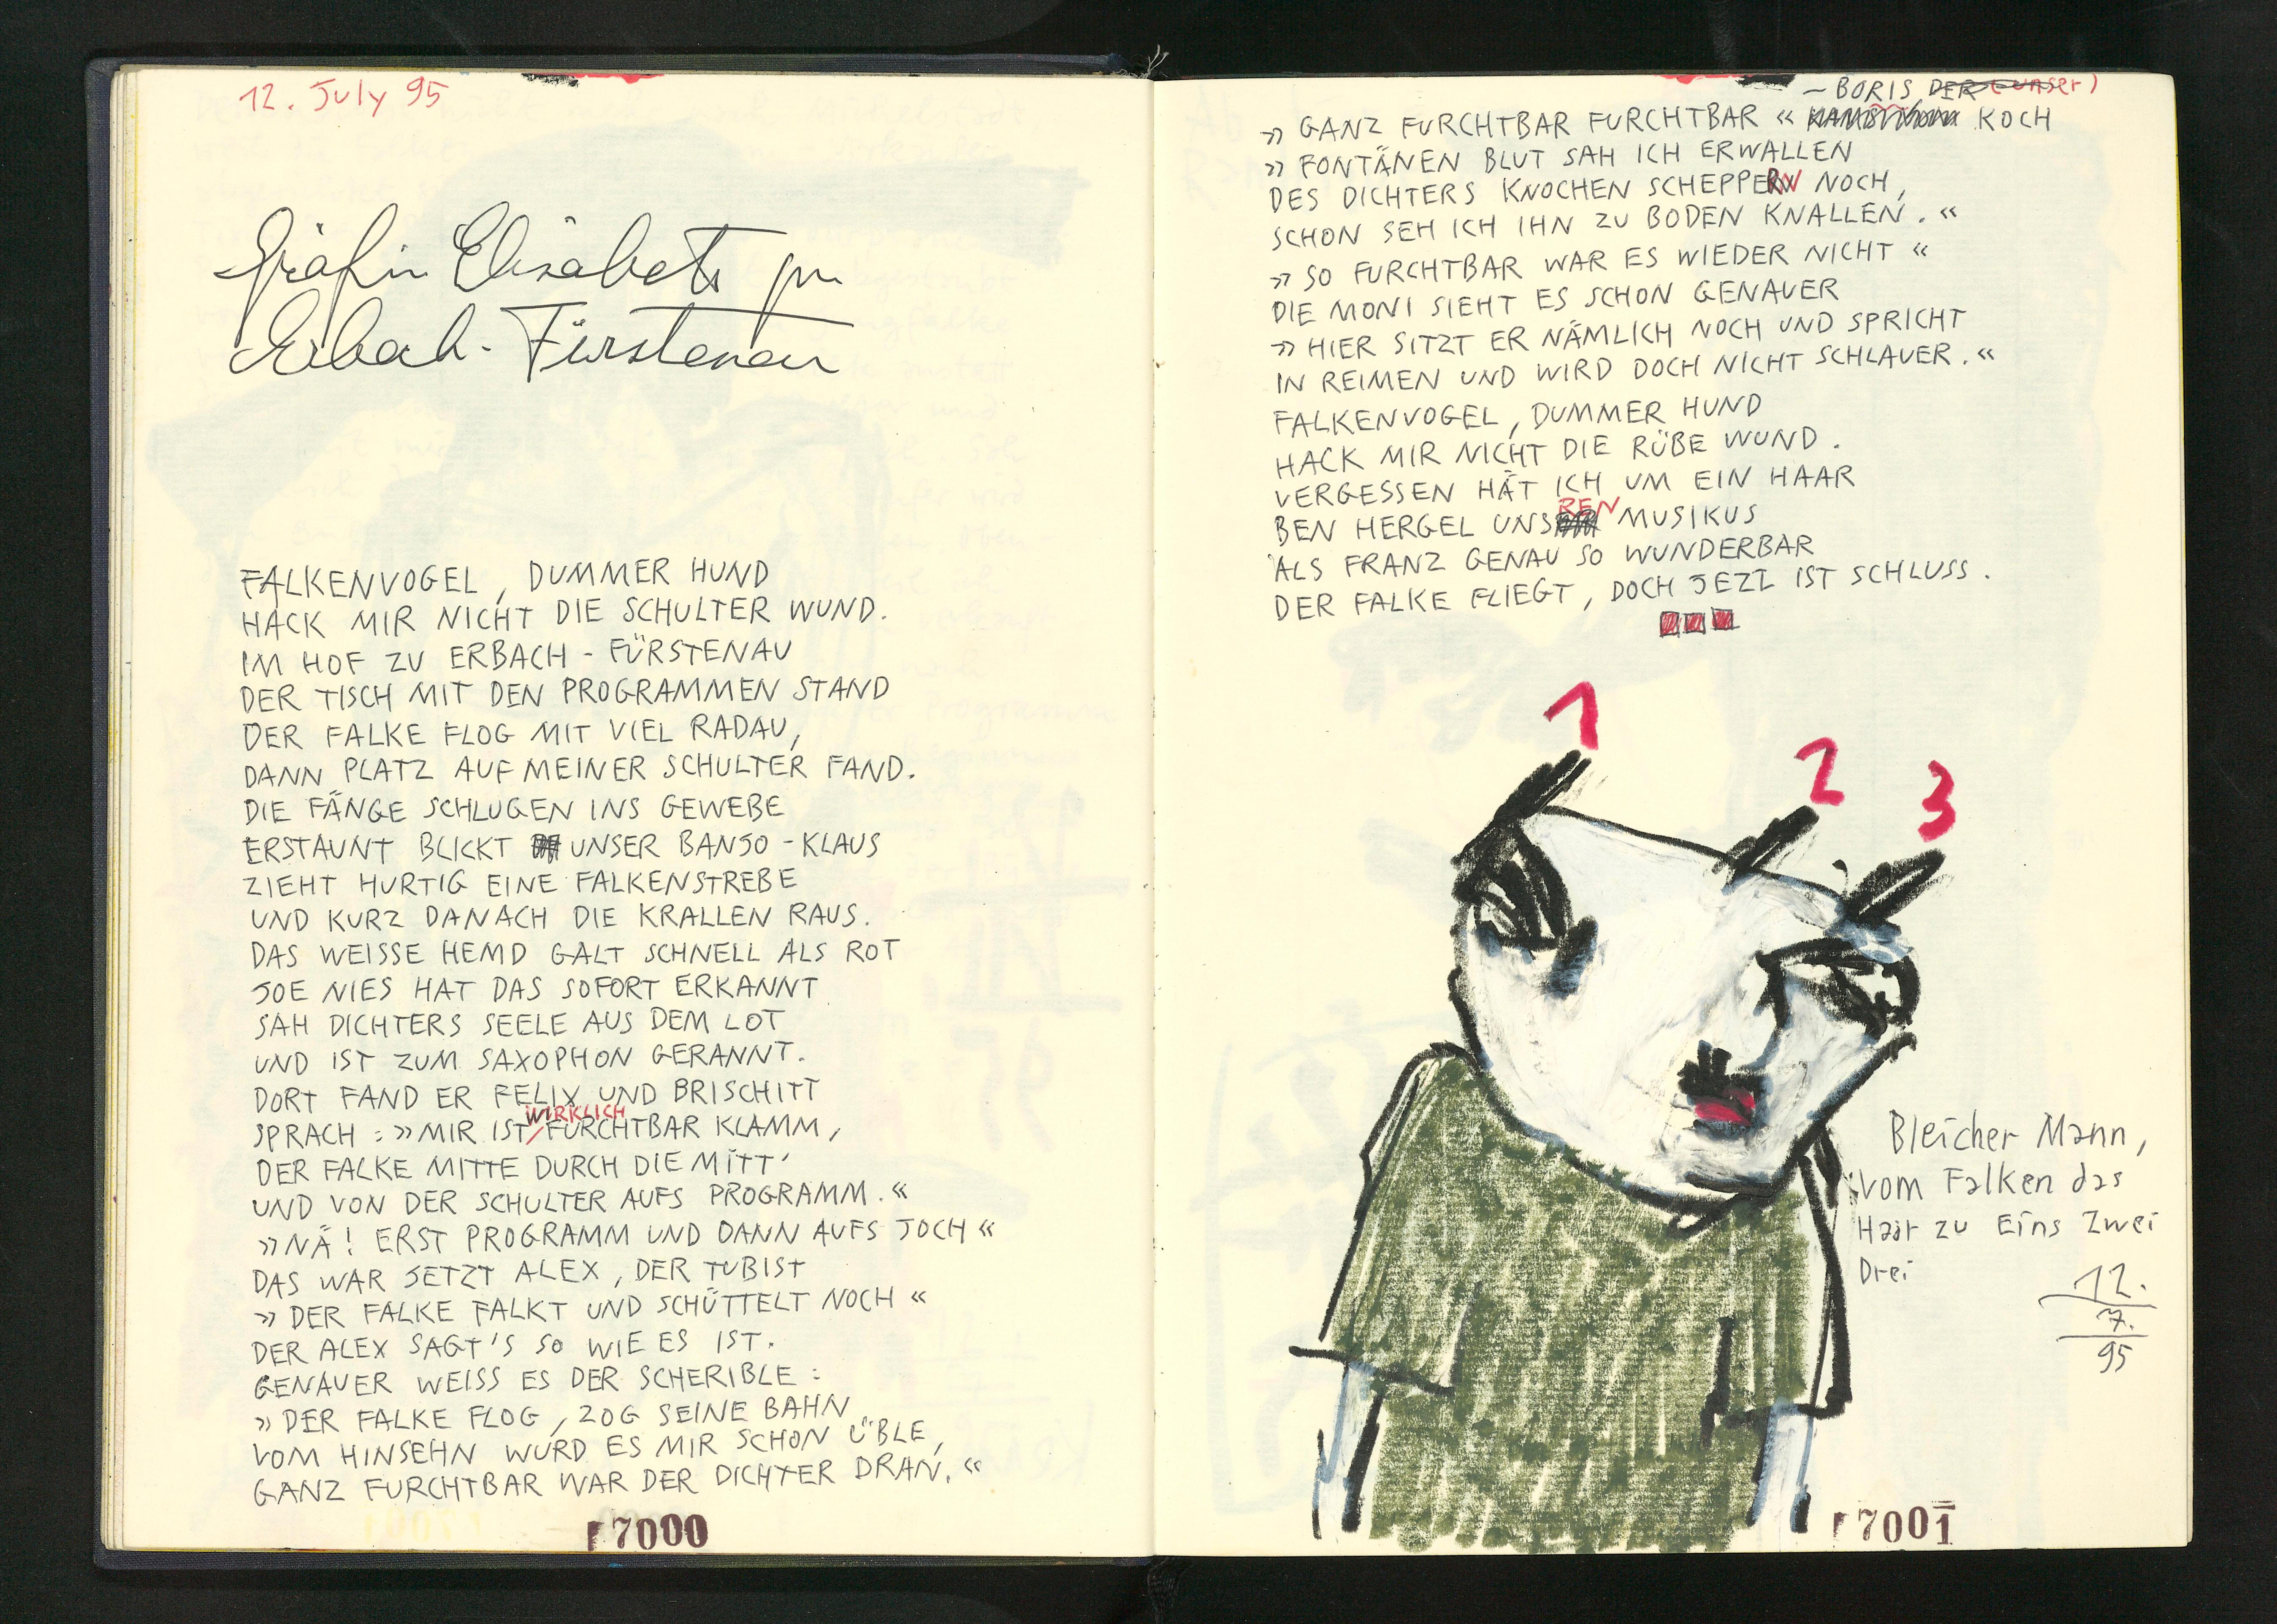 12. July 95
Gräfin Elisabeth zu
Erbach-Fürstenau
FALKENVOGEL, DUMMER HUND
HACK MIR NICHT DIE SCHULTER WUND.
IM HOF ZU ERBACH - FÜRSTENAU
DER TISCH MIT DEN PROGRAMMEN STAND
DER FALKE FLOG MIT VIEL RADAU,
DANN PLATZ AUF MEINER SCHULTER FAND.
DIE FÄNGE SCHLUGEN INS GEWEBE
ERSTAUNT BLICKT UNSER BANJO - KLAUS
ZIEHT HURTIG EINE FALKENSTREBE
UND KURZ DANACH DIE KRALLEN RAUS.
DAS WEISSE HEMD GALT SCHNELL ALS ROT
JOE NIES HAT DAS SOFORT ERKANNT
SAH DICHTERS SEELE AUS DEM LOT
UND IST ZUM SAXOPHON GERANNT.
DORT FAND ER FELIX UND BRISCHITT
SPRACH : »MIR IST WIRKLICH FURCHTBAR KLAMM,
DER FALKE MITTE DURCH DIE MITT'
UND VON DER SCHULTER AUFS PROGRAMM.«
»NÄ! ERST PROGRAMM UND DANN AUFS JOCH«
DAS WAR JETZT ALEX, DER TUBIST
»DER FALKE FALKT UND SCHÜTTELT NOCH«
DER ALEX SAGT'S SO WIE ES IST.
GENAUER WEISS ES DER SCHERIBLE :
»DER FALKE FLOG, ZOG SEINE BAHN
VOM HINSEHN WURD ES MIR SCHON ÜBLE,
GANZ FURCHTBAR WAR DER DICHTER DRAN.«
7000
– BORIS DER (unser)
»GANZ FURCHTBAR FURCHTBAR« KOCH
»FONTÄNEN BLUT SAH ICH ERWALLEN
DES DICHTERS KNOCHEN SCHEPPERN NOCH,
SCHON SEH ICH IHN ZU BODEN KNALLEN.«
»SO FURCHTBAR WAR ES WIEDER NICHT«
DIE MONI SIEHT ES SCHON GENAUER
»HIER SITZT ER NÄMLICH NOCH UND SPRICHT
IN REIMEN UND WIRD DOCH NICHT SCHLAUER.«
FALKENVOGEL, DUMMER HUND
HACK MIR NICHT DIE RÜBE WUND.
VERGESSEN HÄT ICH UM EIN HAAR
BEN HERGEL UNSREN MUSIKUS
ALS FRANZ GENAU SO WUNDERBAR
DER FALKE FLIEGT, DOCH JEZT IST SCHLUSS.
1
2
3
Bleicher Mann,
vom Falken das
Haar zu Eins Zwei
Drei
12.
7.
95
7001